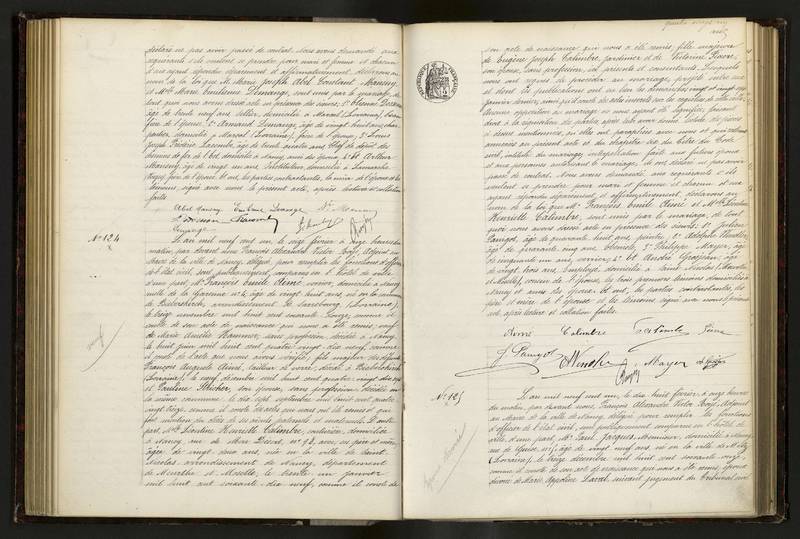 déclaré ne pas avoir passé de contrat. Nous avons demandé aux
requérants s'ils veulent se prendre pour mari et femme et chacun
d'eux ayant répondu séparément et affirmativement, déclarons au
nom de la loi que M. Marie Joseph Abel Constant Mansuy,
et Melle Marie Emilienne Demange, sont unis par le mariage, de
tout quoi nous avons dressé acte en présence des sieurs: 1°
âge de trente neuf ans, sellier, domicilié à Marsal (Lorraine),
de l'épouse, 2° Armand Demange, âgé de vingt
domicilié à Marsal (Lorraine), frère de l'épouse, 3° Louis
Joseph Frédéric Lacombe, âgé de trente quatre ans, Chef de dépôt des
chemins de fer de l'Est, domicilié à Nancy, ami de l'époux, 4° et Arthur
Mansuy, âgé de vingt un ans, Instituteur, domicilié à Lamarche
Vosges, frère de l'époux. Et ont, les parties contractantes, la mère de l'épouse et les
témoins, signé avec nous le présent acte, après lecture et collation
faite.
Abel Mansuy Emilienne Demange
N° 124
L'an mil neuf cent un, le seize février à onze heures du
matin, par devant Nous François Alexandre Victor Boyé, Adjoint au
Maire de la ville de Nancy, délégué pour remplir les fonctions d'officier
de l'état civil, sont publiquement comparus en l'hôtel de ville
d'une part, Mr François Emile Aimé, verrier, domicilié à Nancy
ruelle de la Garenne n° 4, âgé de vingt huit ans, né en la commune
de Biberskirch, arrondissement de Sarrebourg (Lorraine),
le treize novembre mil huit cent soixante douze, comme il
conste de son acte de naissance qui nous a été remis, veuf
de Marie Amélie Hammer, sans profession, décédée à Nancy,
le huit juin mil huit cent quatre vingt dix neuf, comme
il conste de l'acte que nous avons vérifié, fils majeur des défunts
François Auguste Aimé, tailleur de verre, décédé à Biberskirch
(Lorraine), le neuf décembre mil huit cent quatre vingt dix sept
et Pauline Stricher, son épouse, sans profession, décédée en
la même commune, le dix sept septembre mil huit cent quatre
vingt treize, comme il conste des actes qui nous ont été remis et qui
font mention du décès de ses aïeuls paternels et maternels. D'autre
part, Melle Léontine Henriette Calimbre, couturière, domiciliée
à Nancy, rue de Mon Désert, n° 93, avec ses père et mère,
âgée de vingt deux ans, née en la ville de Saint
Nicolas, arrondissement de Nancy, département
de Meurthe et Moselle, le trente un janvier
mil huit cent soixante dix neuf, comme il conste de
veuf
son acte de naissance qui nous a été remis, fille majeure
de Eugène Joseph Calimbre, jardinier et de Victorine Pierre,
son épouse, sans profession, ici présents et consentants. Lesquels
nous ont requis de procéder au mariage projeté entre eux
et dont les publications ont eu lieu les dimanches vingt et vingt sept
janvier dernier, ainsi qu'il conste des actes inscrits sur les registres de cette ville
Aucune opposition au mariage ne nous ayant été signifiée, faisant
droit à la réquisition des parties, après avoir donné lecture des pièces
ci dessus mentionnées, où elles ont paraphées avec nous et qui restent
annexées au présent acte et du chapitre six du titre du Code
civil, intitulé du mariage, interpellation faite aux futurs époux
et aux personnes autorisant le mariage, ils ont déclaré ne pas avoir
passé de contrat. Nous avons demandé aux requérants s'ils
veulent se prendre pour mari et femme et chacun d'eux
ayant répondu séparément et affirmativement, déclarons au
nom de la loi que Mr François Emile Aimé et Melle Léontine
Henriette Calimbre, sont unis par le mariage, de tout
quoi nous avons dressé acte en présence des sieurs: 1° Julien
Paingot, âgé de quarante huit ans, peintre, 2° Adolphe
âgé de quarante cinq ans, 3° Philippe Mayer, âgé
de cinquante un ans, verrier, 4° et André Grosjean, âgé
de vingt trois ans, Employé, domicilié à Saint Nicolas (Meurthe
et Moselle), cousin de l'épouse, les trois premiers témoins domiciliés à
Nancy et amis des époux. Et ont, les parties contractantes, les
père et mère de l'épouse et les témoins signé avec nous le présent
acte après lecture et collation faite.
Aimé Calimbre Pierre
J. Paingot Mayer
N° 125
L'an mil neuf cent un, le dix huit février à onze heures
du matin, par devant nous, François Alexandre Victor Boyé, Adjoint
au Maire de la ville de Nancy, délégué pour remplir les fonctions
d'officier de l'état civil, sont publiquement comparus en l'hôtel de
ville, d'une part, Mr Paul Jacques, Menuisier, domicilié à Nancy
rue de Guise, âgé de vingt neuf ans, né en la ville de Metz
(Lorraine), le treize décembre mil huit cent soixante onze,
comme il conste de son acte de naissance qui nous a été remis, époux
divorcé de Marie Appoline Laval, suivant jugement du Tribunal civil